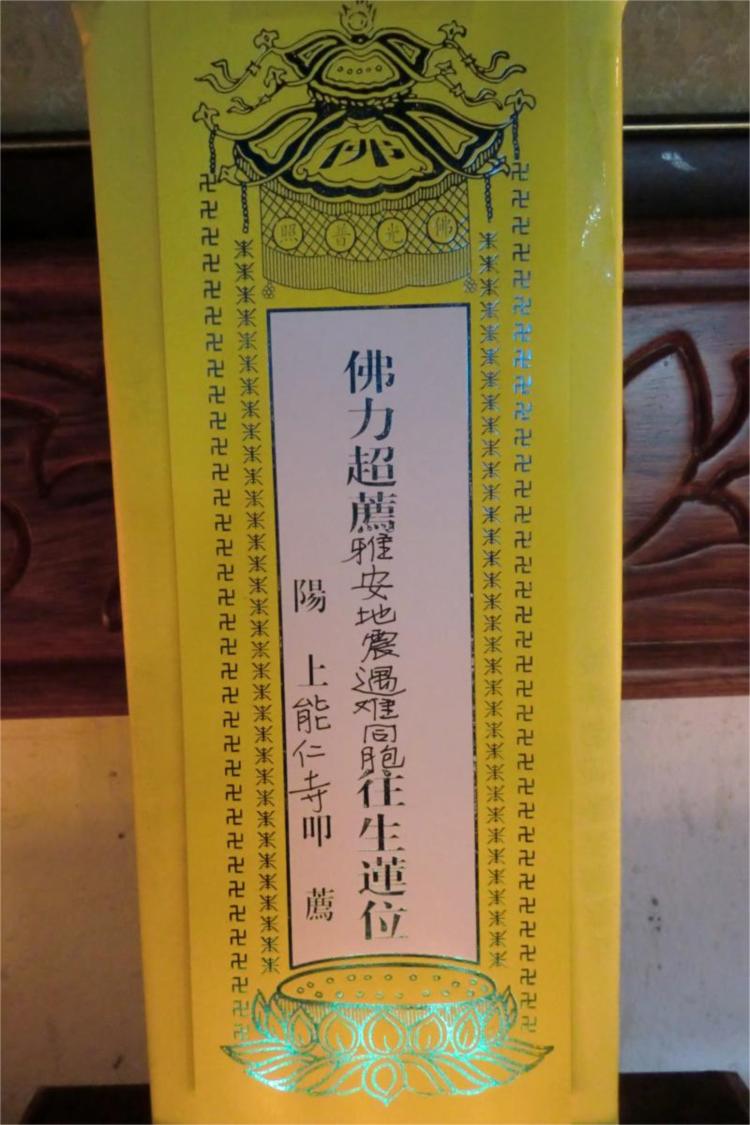 佛
佛光普照
佛力超薦雅安地震遇难同胞往生蓮位
陽上能仁寺叩薦